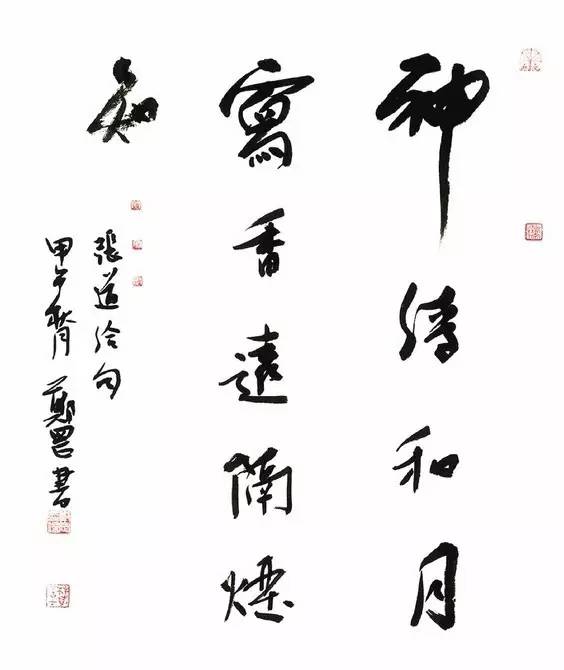 神清和月
寫香遠隔煙
知
張道洽句
甲午秋月 鄭書